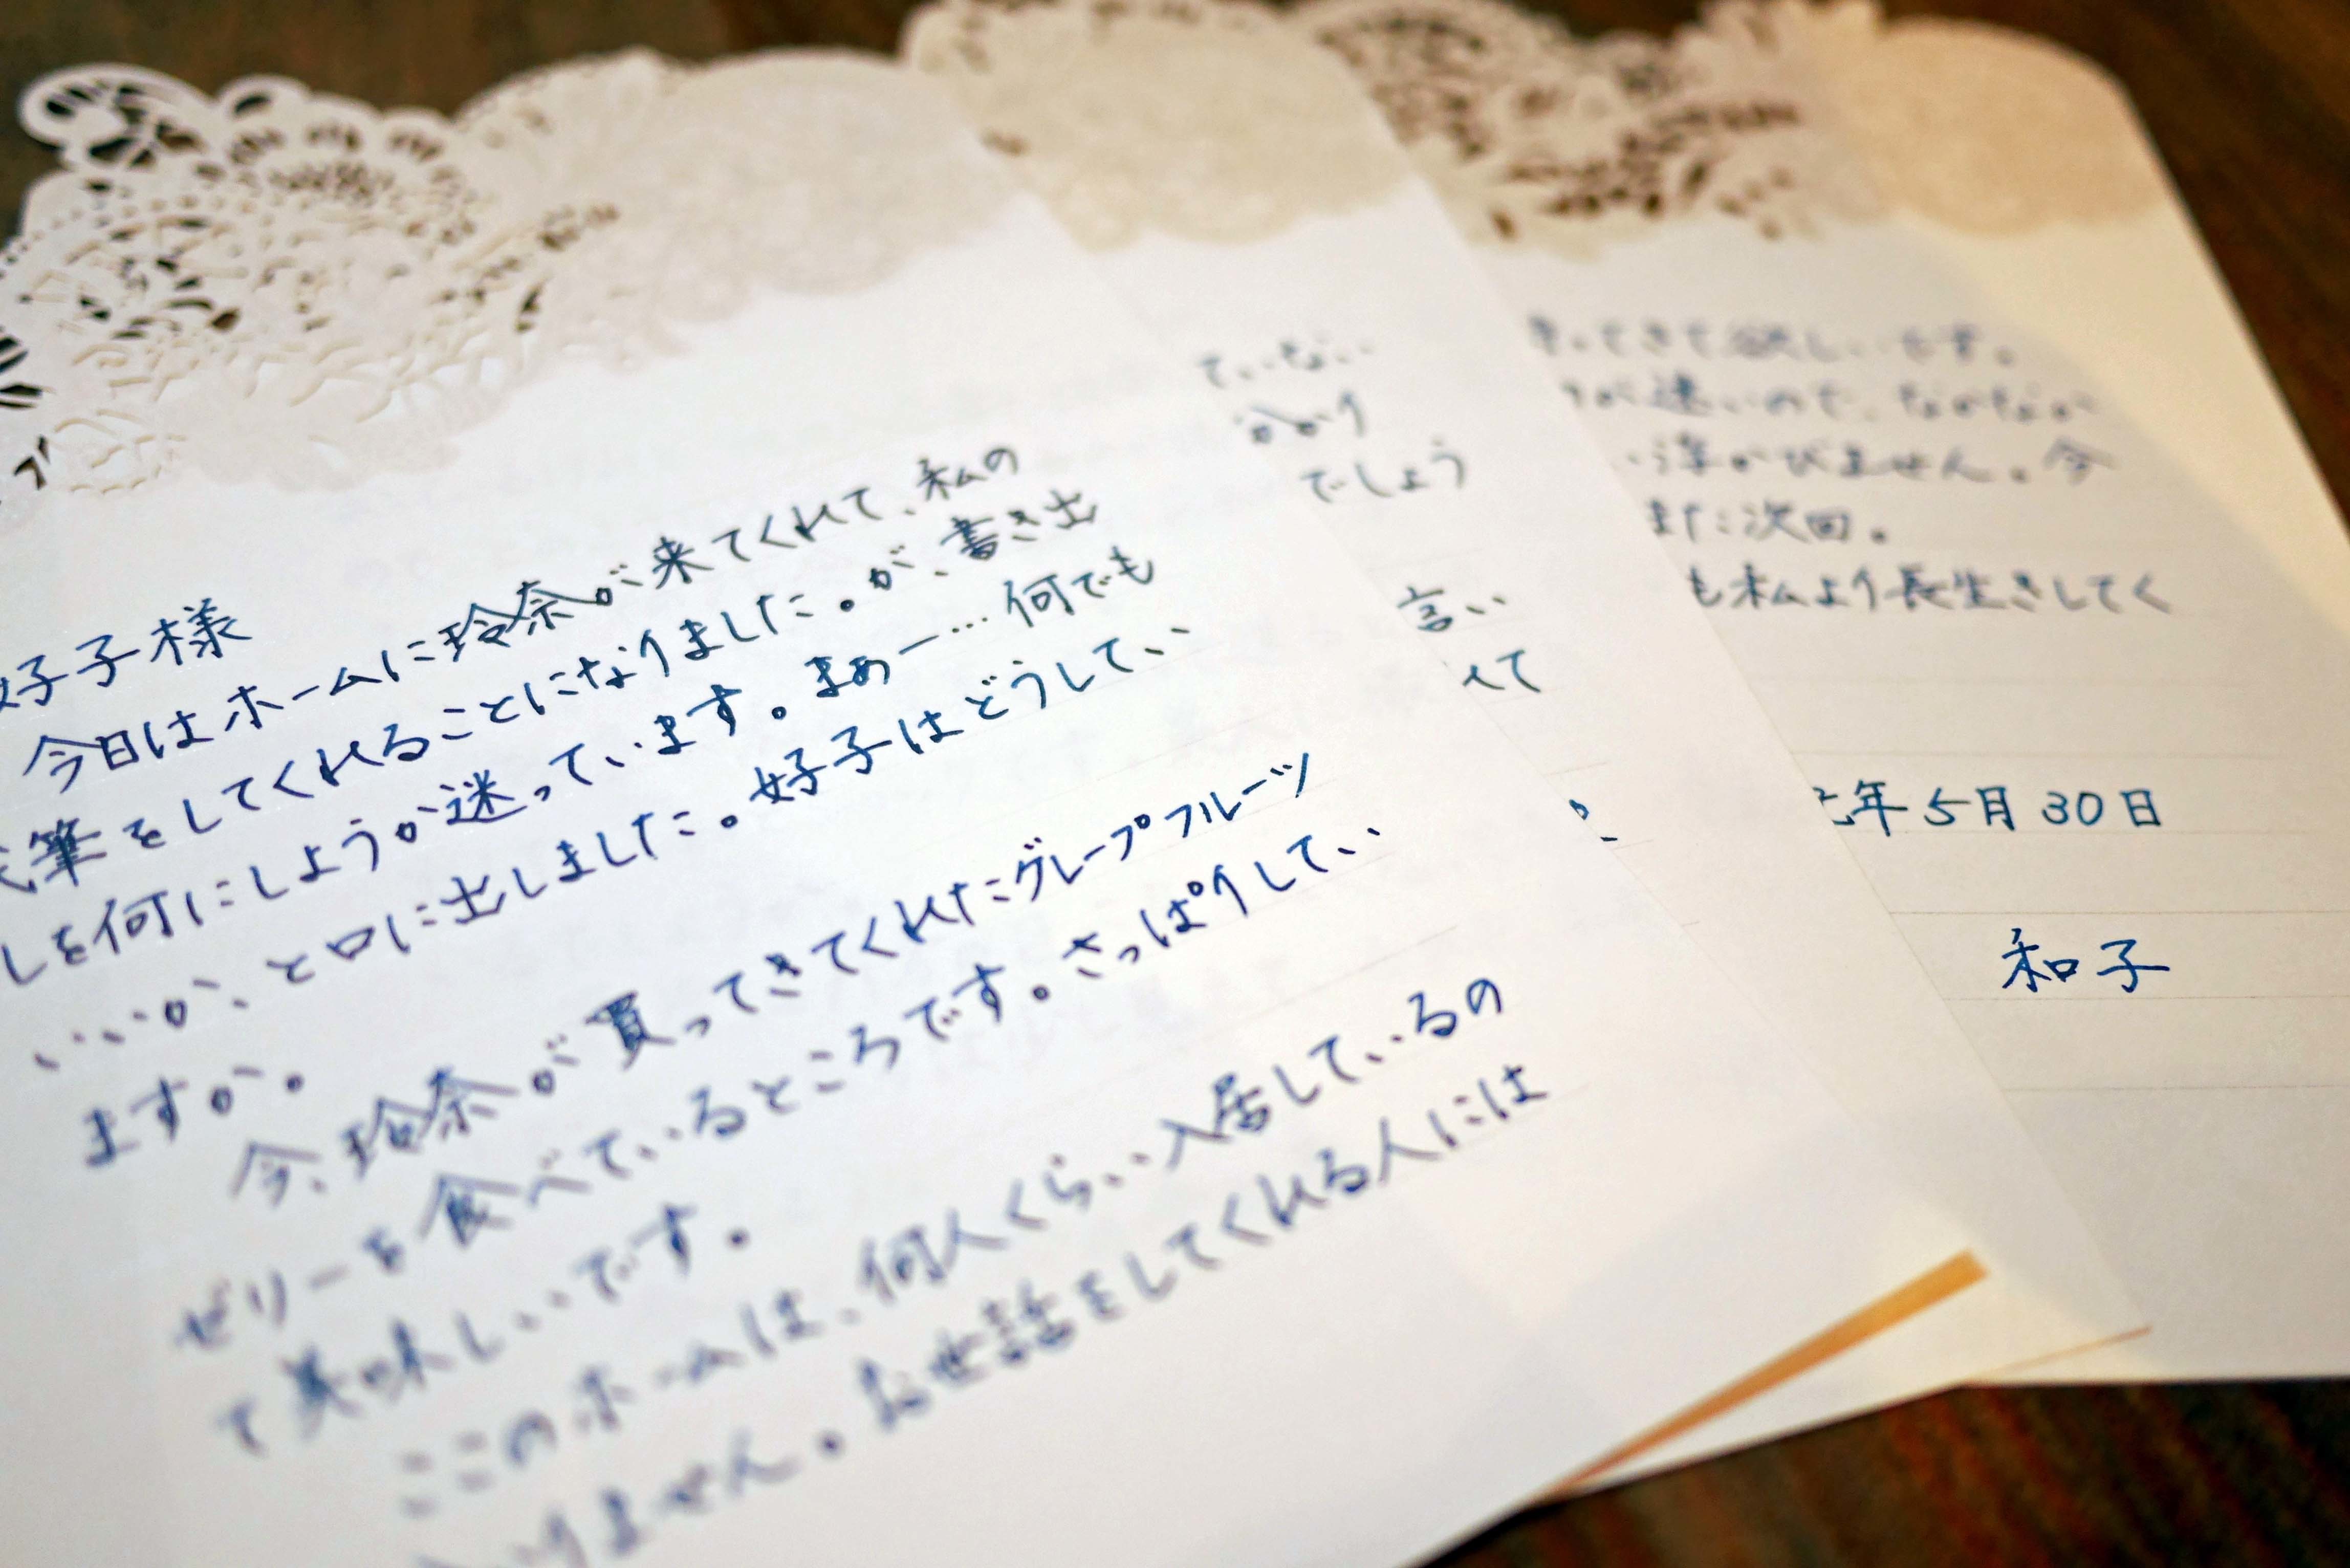 好子様
今日はホームに玲奈が来てくれて、私の
筆をしてくれることになりました。が、書き出
しを何にしようか迷っています。まぁー…何でも
いいか、と口に出しました。好子はどうしてい
ますか。
今、玲奈が買ってきてくれたグレープフルーツ
ゼリーを食べているところです。さっぱりしてい
て美味しいです。
このホームは、何人くらい入居しているの
りません。お世話をしてくれる人には
ていない
分かり
でしょう
言い
べて
きってきて欲しいです。
が速いので、なかなか
浮かびません。今
また次回。
も私より長生きしてく
元年5月30日
和子